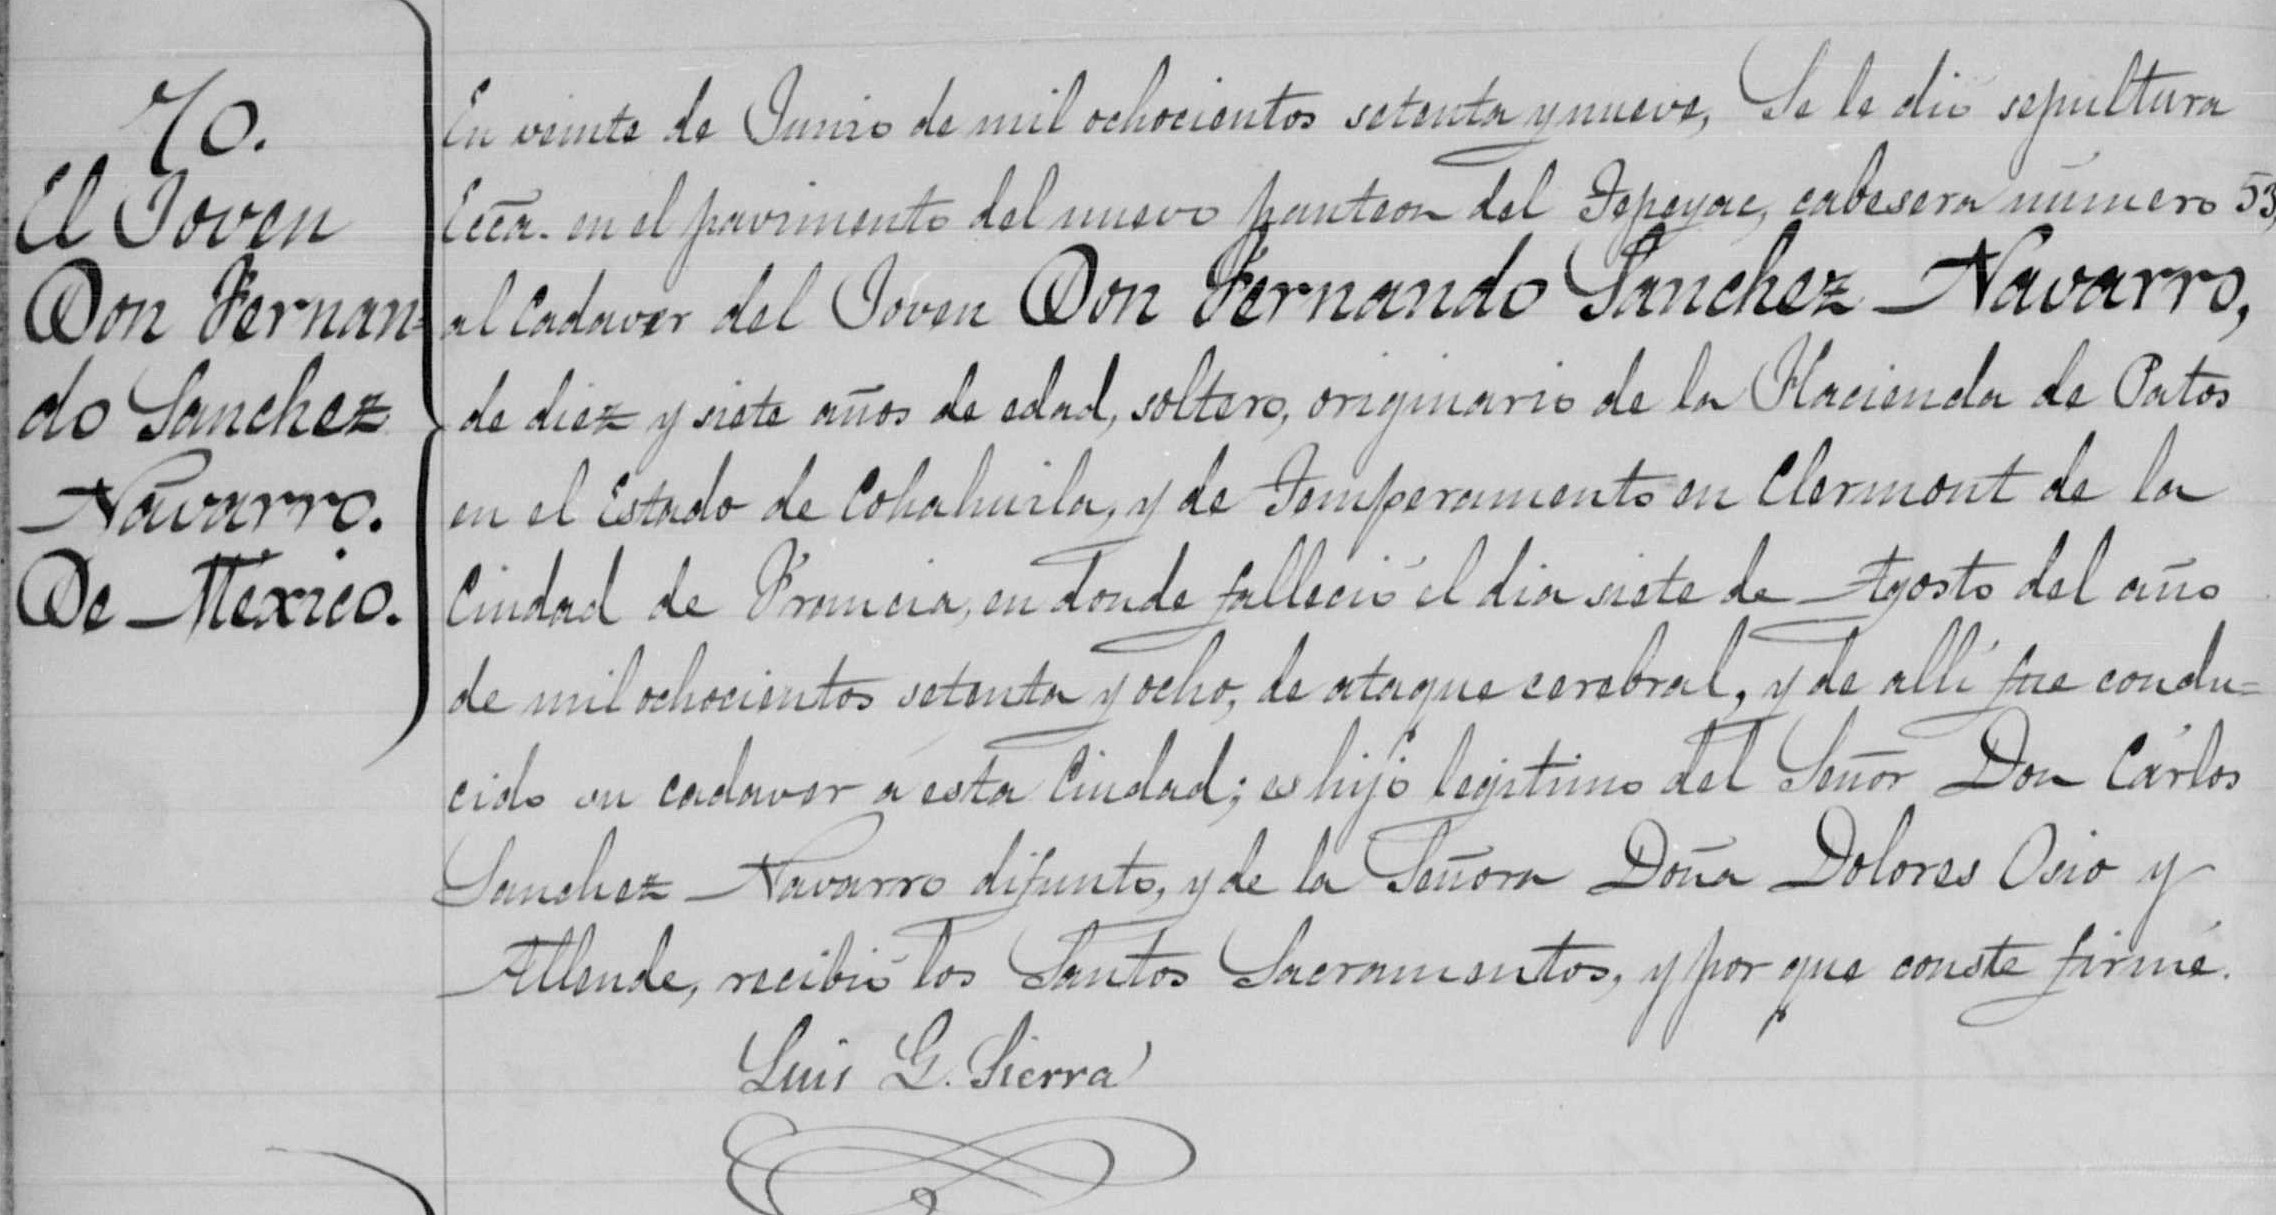 70.
El Joven
Don Fernan=
do Sanchez
Navarro.
De México.
En veinte de Junio de mil ochocientos setenta y nueve, Se le dió sepultura
Ecc̃a. en el pavimento del nuevo panteon del Tepeyac, cabesera número 53,
al Cadaver del Joven Don Fernando Sanchez Navarro,
de diez y siete años de edad, soltero, originario de la Hacienda de Patos
en el Estado de Cohahuila, y de Temperamento en Clermont de la
Ciudad de Francia, en donde falleció el dia siete de Agosto del año
de mil ochocientos setenta y ocho, de ataque cerebral, y de allí fue condu=
cido su cadaver á esta Ciudad; es hijo legitimo del Señor Don Cárlos
Sanchez Navarro difunto, y de la Señora Doña Dolores Osio y
Allende, recibió los Santos Sacramentos, y por que conste firmé.
Luis G. Sierra